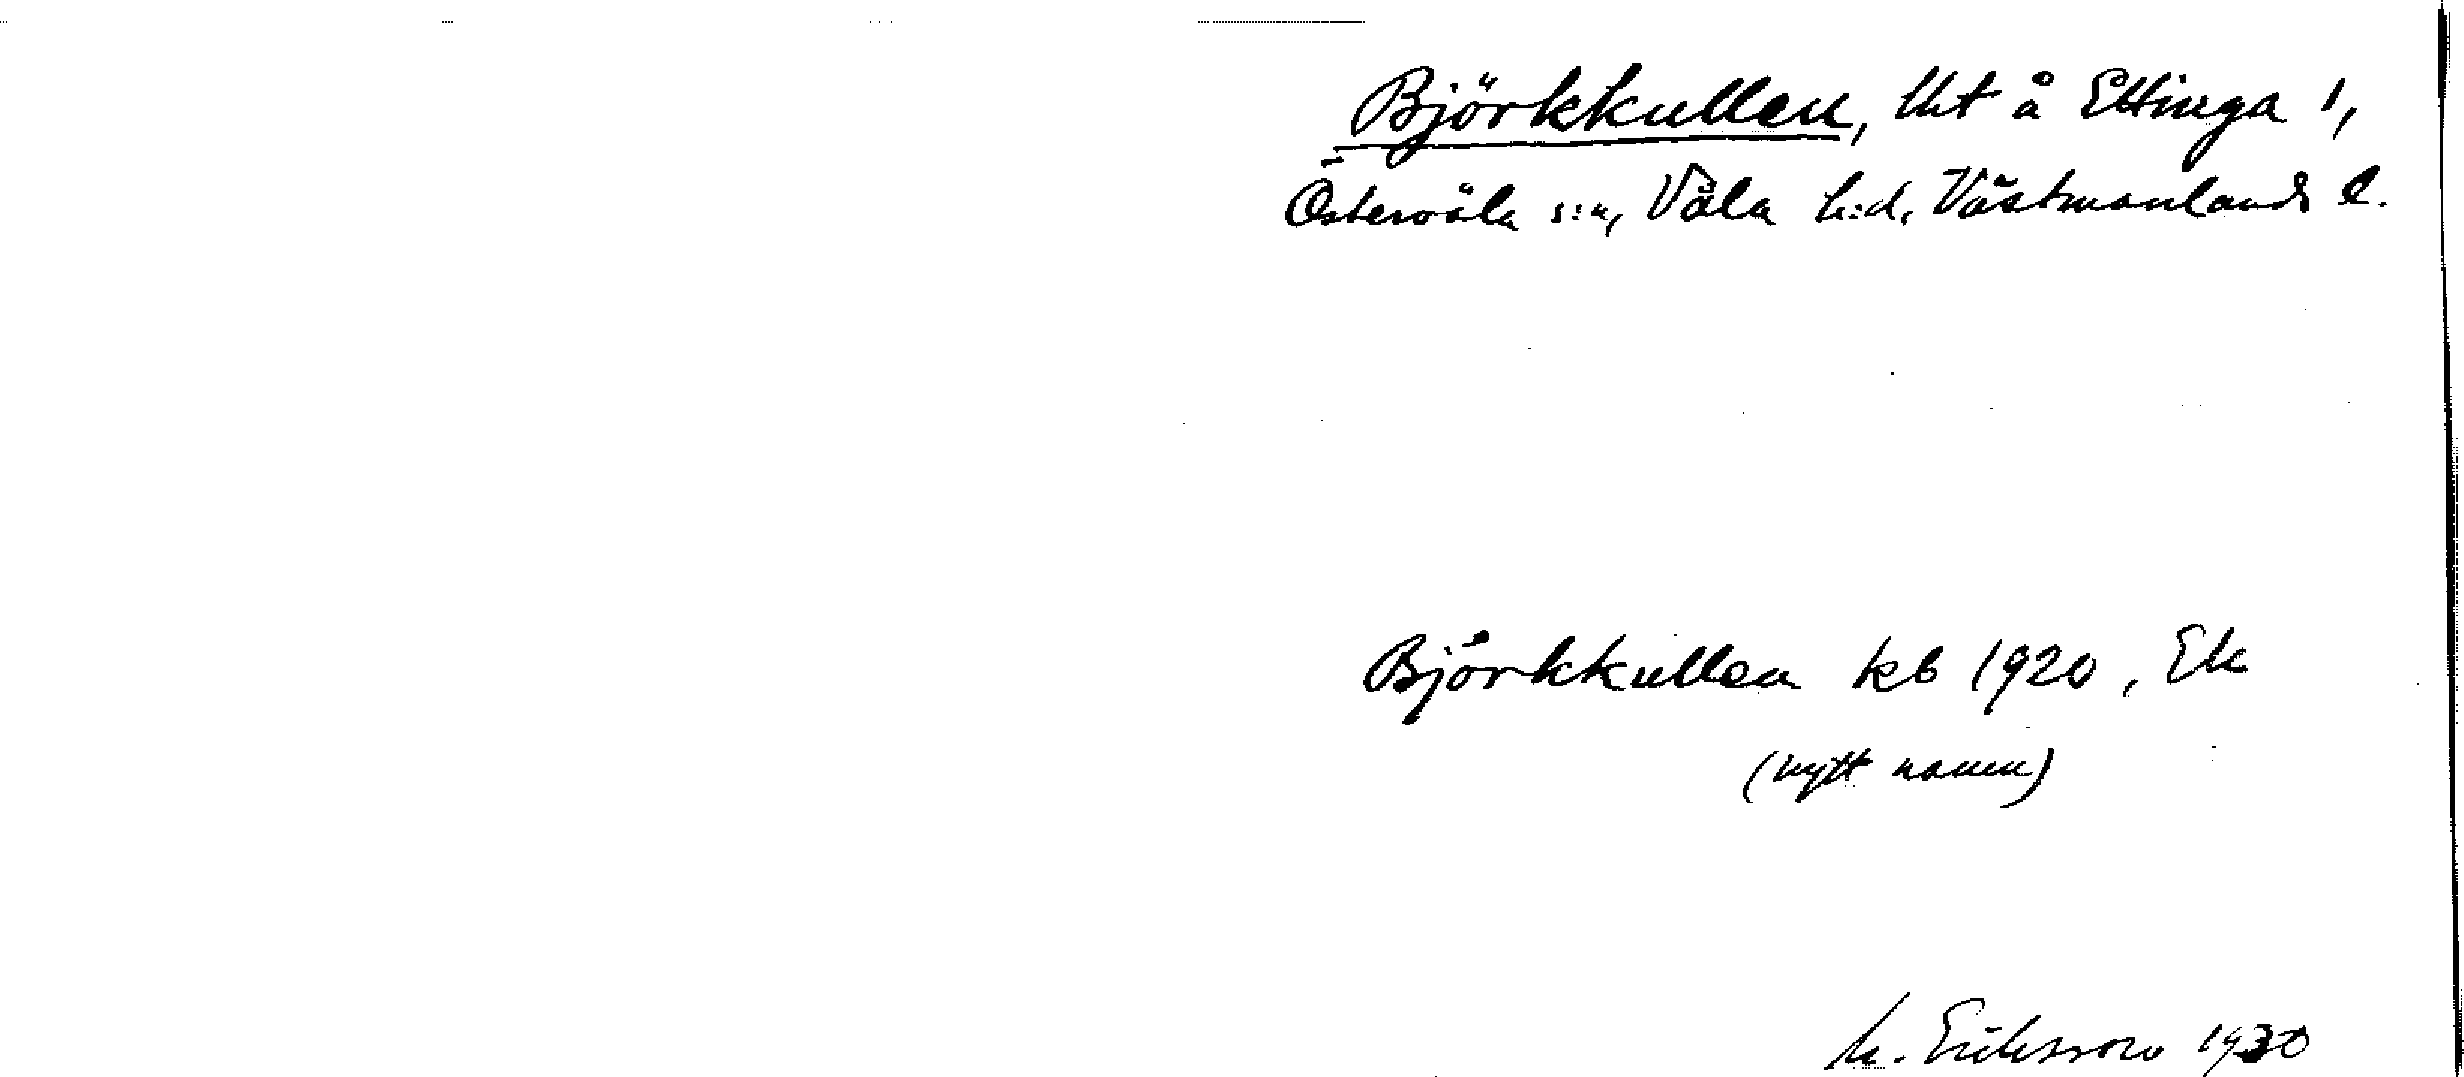 Björkkullen, lht å Ettinga 1,
Östervåla s:n, Våla h:d, Västmanlands l.
Björkkullen kb 1920, Ek
(nytt namn)
M. Eriksson 1930